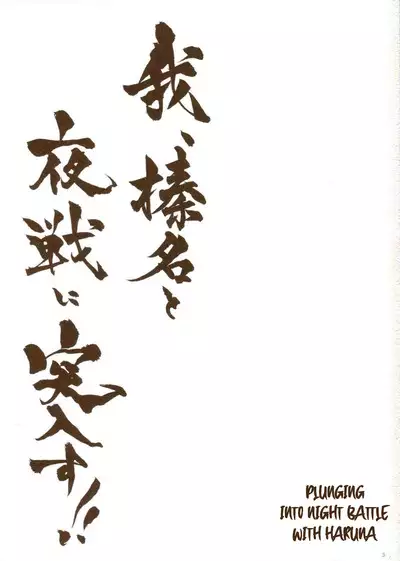 我、榛名と
夜戦に
突入す!!
PLUNGING
INTO NIGHT BATTLE
WITH HARUNA